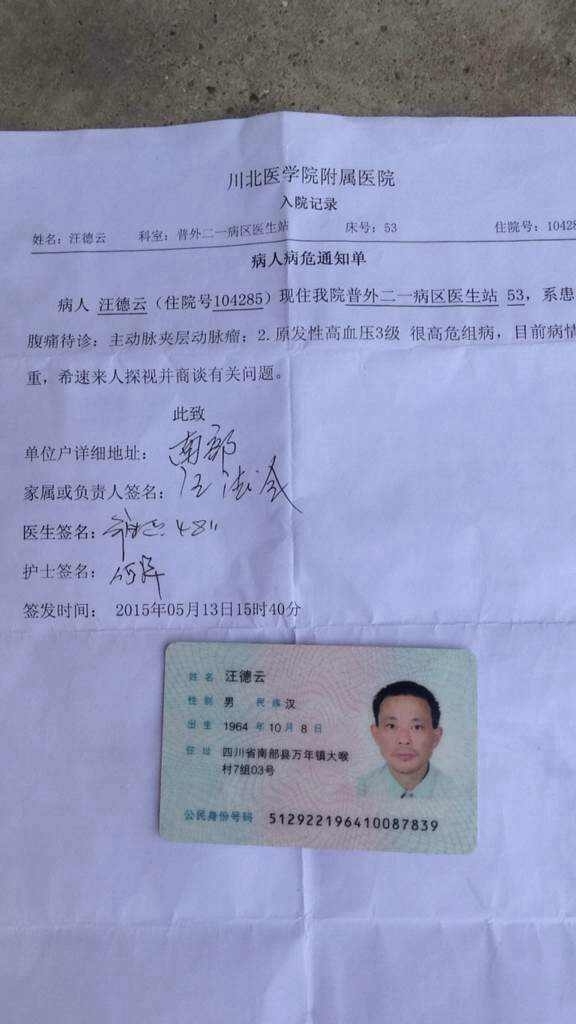 川北医学院附属医院
入院记录
姓名：汪德云 科室：普外二一病区医生站 床号：53 住院号：10428
病人病危通知单
病人 汪德云（住院号104285）现住我院普外二一病区医生站 53，系患
腹痛待诊：主动脉夹层动脉瘤；2.原发性高血压3级 很高危组病，目前病情
重，希速来人探视并商谈有关问题。
此致
单位户详细地址： 南部
家属或负责人签名：
医生签名：
护士签名：
签发时间： 2015年05月13日15时40分
姓名 汪德云
性别 男 民族 汉
出生 1964 年 10 月 8 日
住址 四川省南部县万年镇大喉
村7组03号
公民身份号码 512922196410087839